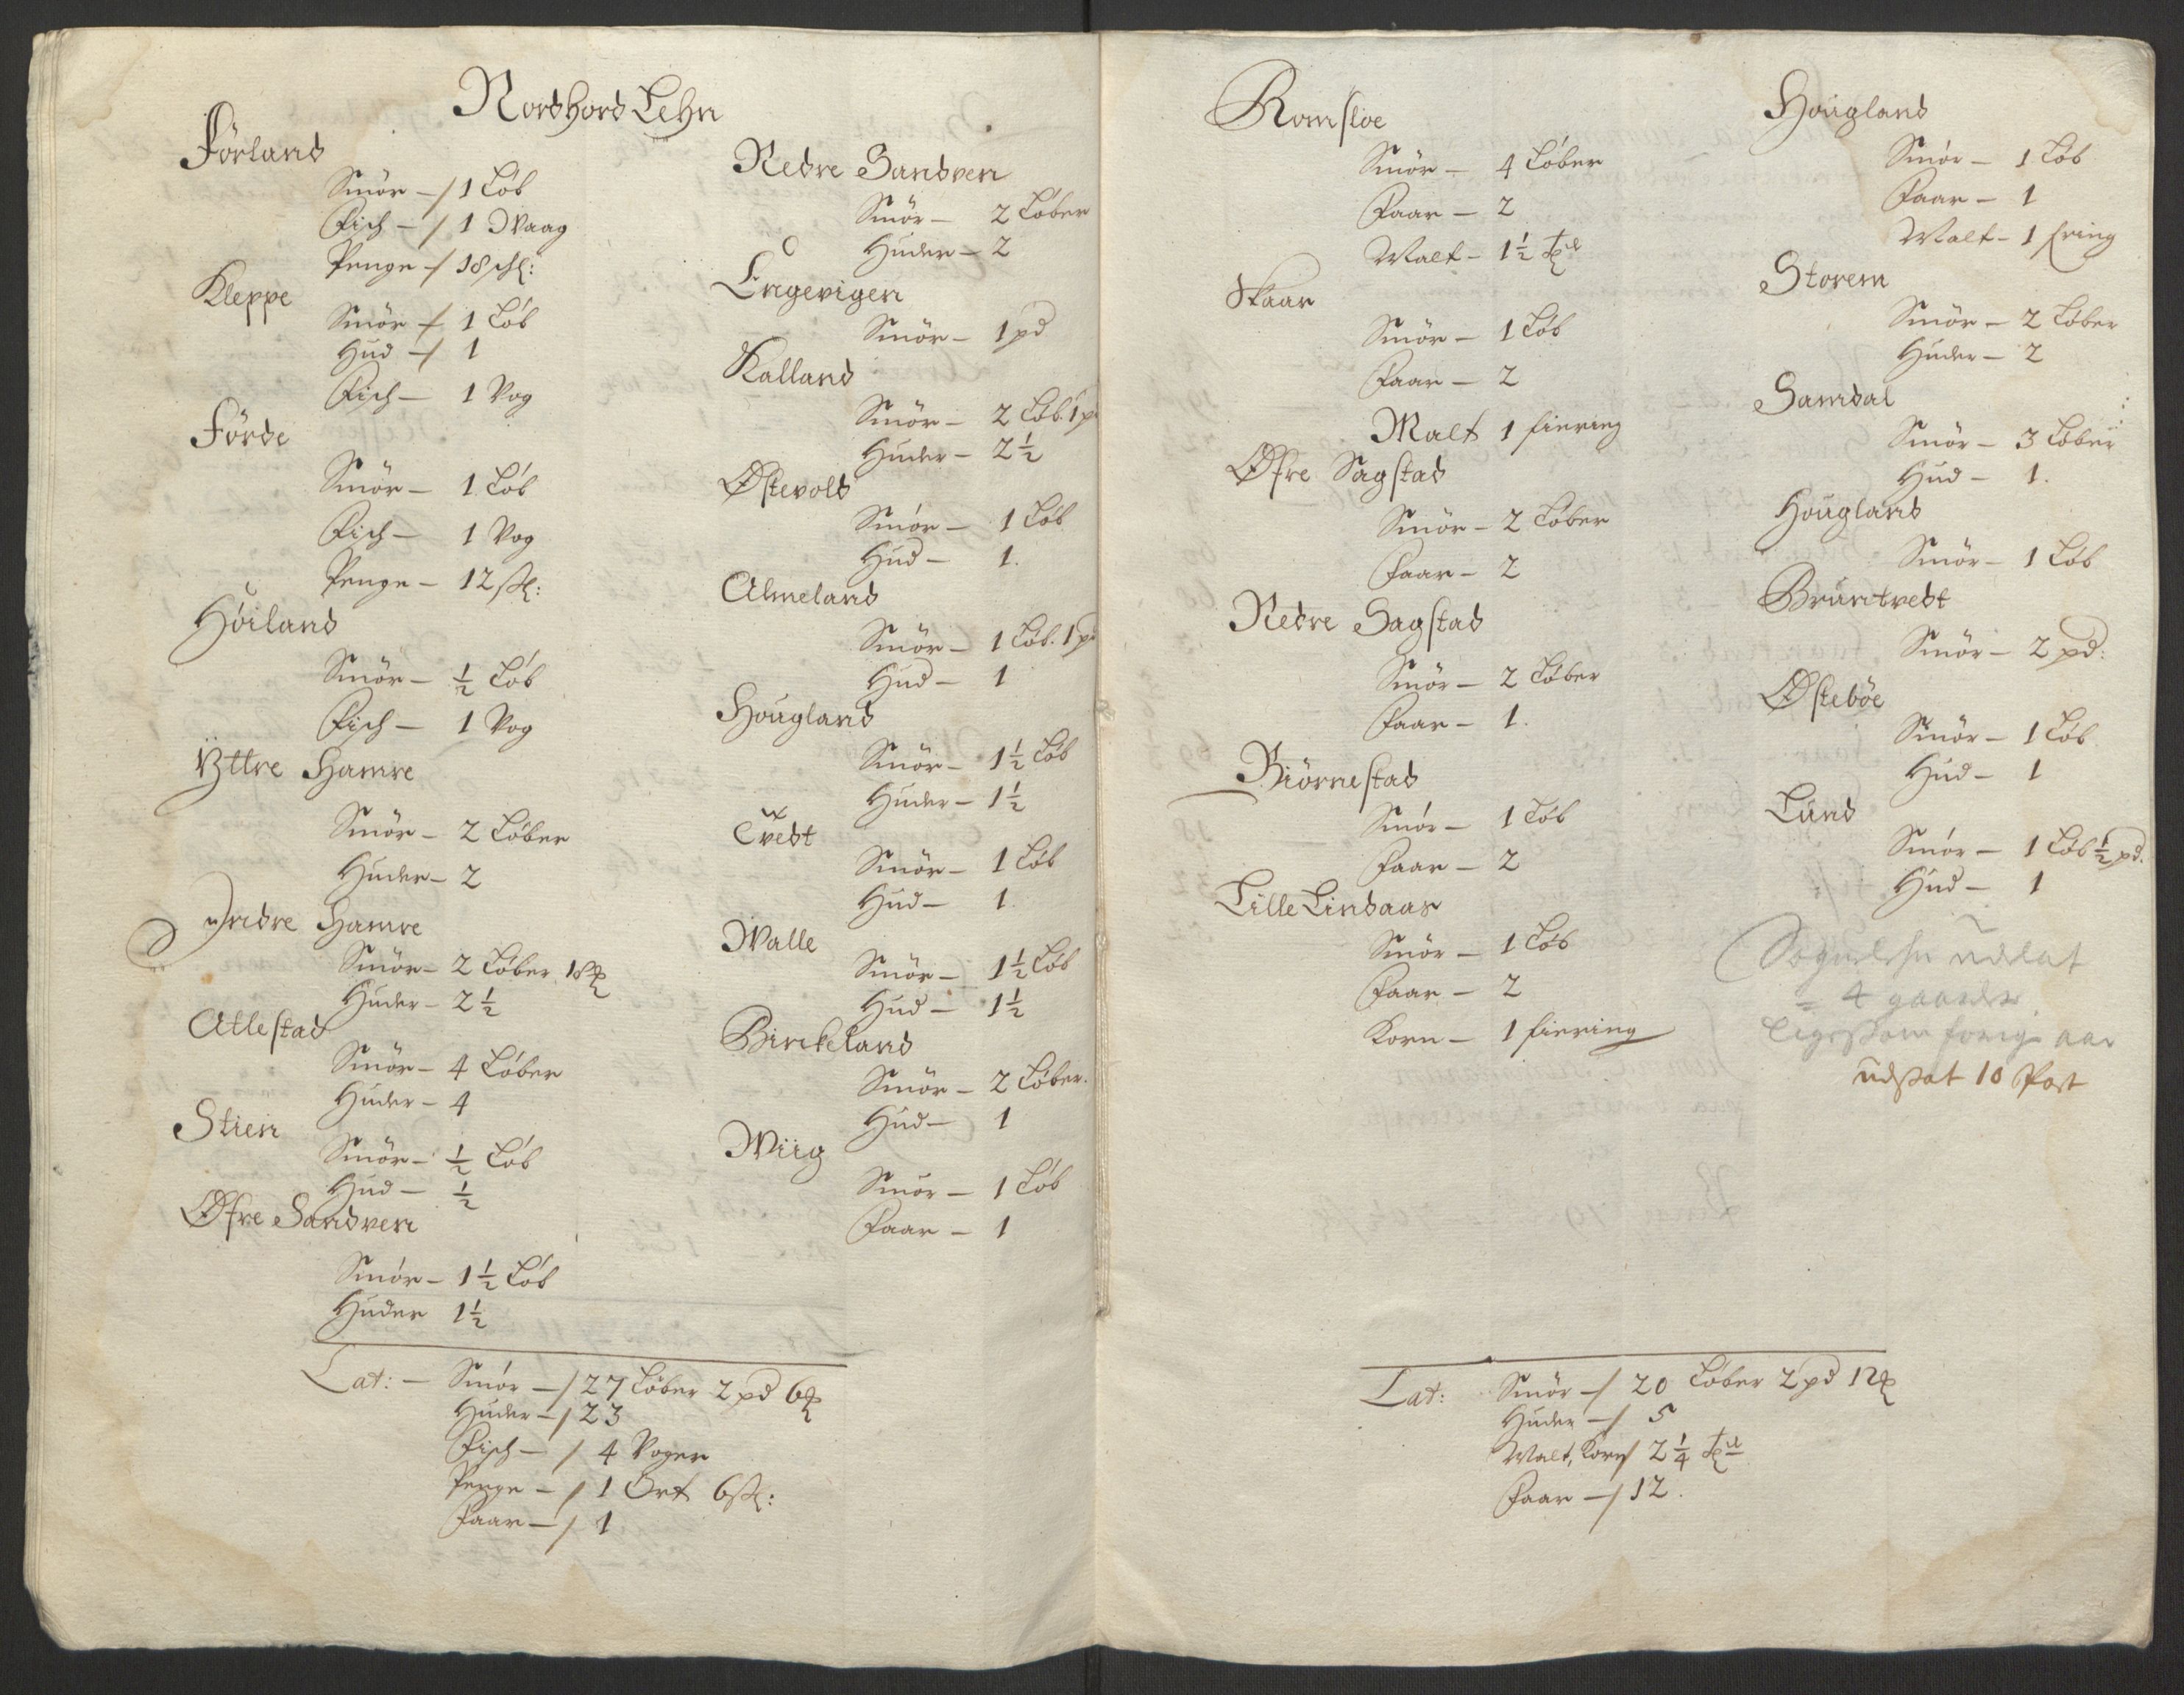 Nordhord Lehn
Förland
Smör - / 1 Löb
Fisch - / 1 Waag
Penge - / 18 schl:
Kleppe
Smör - / 1 Löb
Hud - / 1
Fisch - 1 Vog
Förde
Smör - 1 Löb
Fisch - 1 Vog
Penge - 12 ßl:
Höiland
Smör - ½ Löb
Fisch - 1 Vog
Ÿttre Hamre
Smör - 2 Löber
Huder - 2
Indre Hamre
Smör - 2 Löber 18 ℔
Huder - 2½
Atlestad
Smör - 4 Löber
Huder - 4
Stien
Smör - ½ Löb
Hud - ½
Øfre Sandven
Smör - 1½ Löb
Huder 1½
Nedre Sandven
Smör - 2 Löber
Huder - 2
Engevigen
Smör - 1 pd
Kalland
Smör - 2 Löb 1 p
Huder - 2½
Østevold
Smör - 1 Löb
Hud - 1.
Almeland
Smör - 1 Löb. 1 pd
Hud - 1
Hougland
Smör - 1½ Löb
Huder - 1½
Tvedt
Smör - 1 Löb
Hud - 1.
Walle
Smör - 1½ Löb
Hud - 1½
Birckeland
Smör - 2 Löber.
Hud - 1
Wiig
Smör - 1 Löb
Faar - 1
Lat: - Smör - / 27 Löber 2 pd 6 ℔
Huder - / 23
Fisch - / 4 Voger
Penge - / 1 Ort 6 ßl:
Faar - / 1
Romsloe
Smör - 4 Löber
Faar - 2
Malt - 1½ t℔
Skaar
Smör - 1 Löb
Faar - 2
Malt 1 fiering
Øfre Sagstad
Smör - 2 Löber
Faar - 2
Nedre Sagstad
Smör - 2 Löber
Faar - 1.
Biörnestad
Smör - 1 Löb
Faar - 2
Lille Lindaas
Smör - 1 Löb
Faar - 2
Korn - 1 fiering
Hougland
Smör - 1 Löb
Faar - 1
Malt - 1 fring
Storem
Smör - 2 Löber
Huder - 2
Samdal
Smör - 3 Löber
Hud - 1.
Hougland
Smör - 1 Löb
Bruntvedt
Smör - 2 pd:
Østeböe
Smör - 1 Löb
Hud - 1
Lund
Smör - 1 Löb ½ pd.
Hud - 1
udelat
= 4 gaarder
ligesom forige aar
udsat 10 Post
Lat: Smör - / 20 Löber 2 pd 12 ℔
Huder - / 5
Malt, Korn / 2¼ t℔
Faar - / 12.